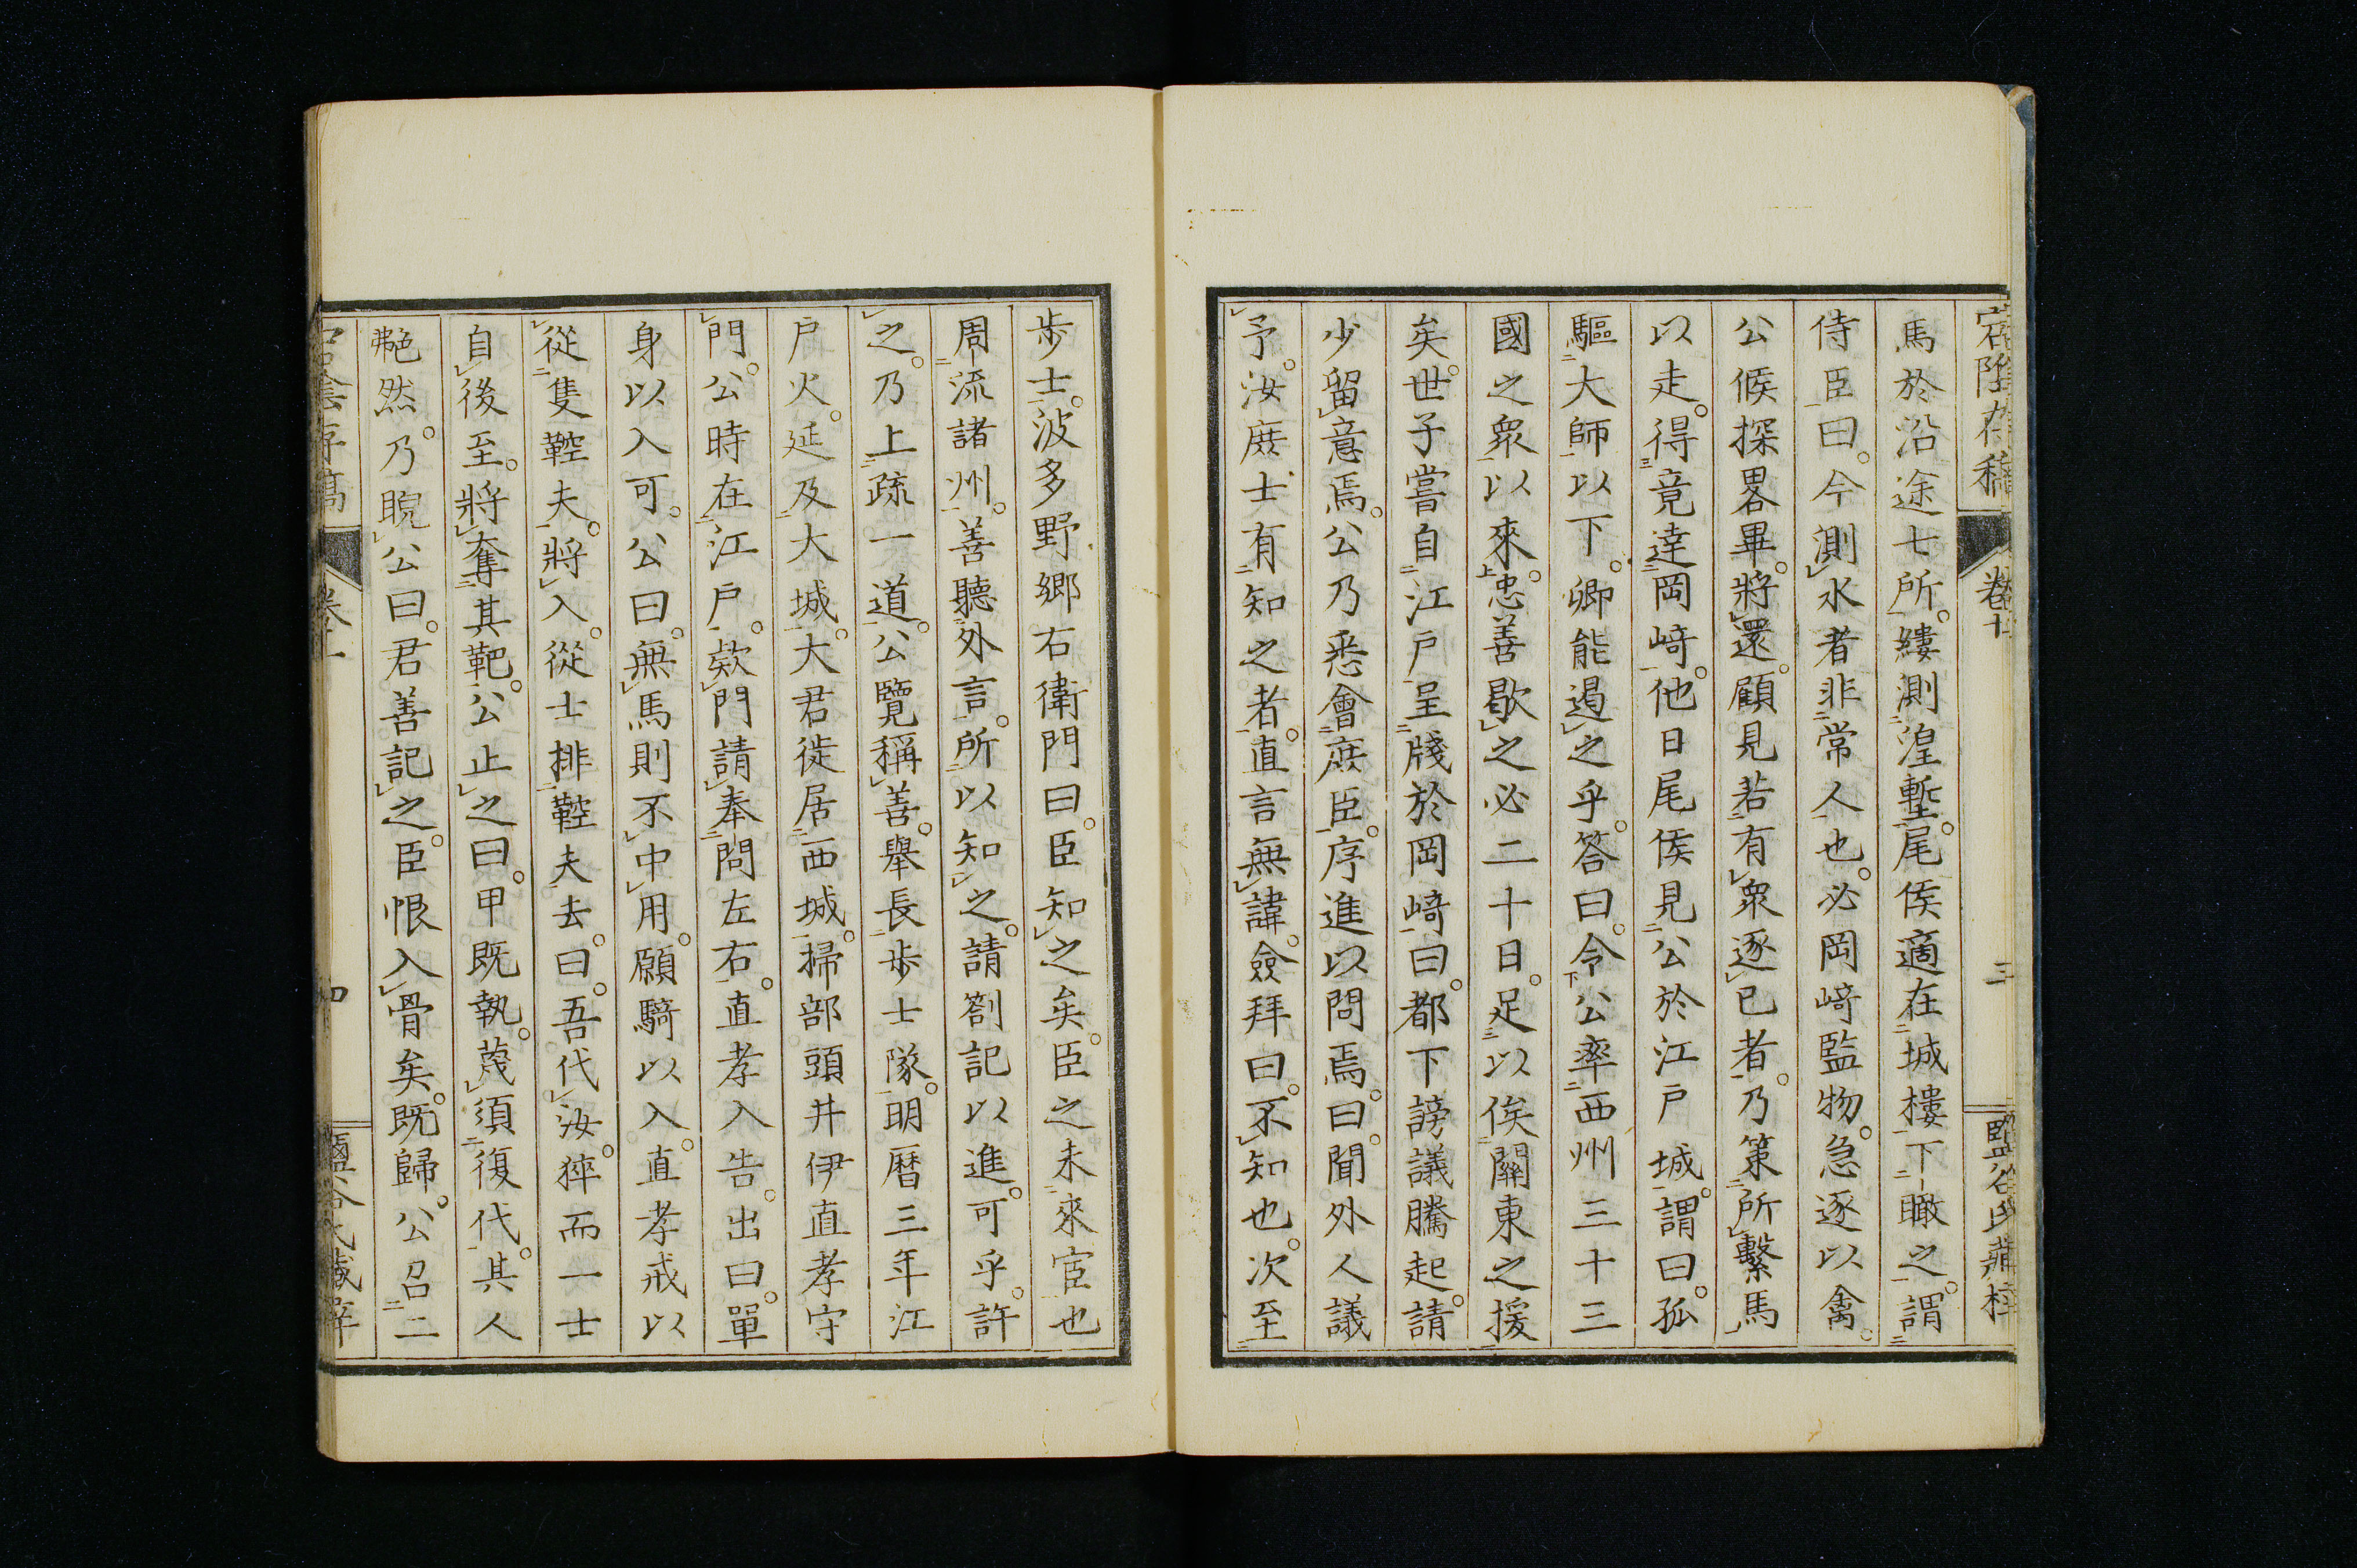 宕陰存稿 卷十 三 鹽谷氏藏梓
馬於沿途七所。縷測湟塹。尾侯適在城樓下瞰之。謂
侍臣曰。今測水者非常人也。必岡﨑監物。急逐以禽。
公候探畧畢。將還。顧見若有衆逐已者。乃策所繫馬
以走。得竟達岡﨑。他日尾侯見公於江戶城。謂曰。孤
驅大師以下。卿能遏之乎。答曰。令公率西州三十三
國之衆以來。忠善歇之必二十日。足以俟關東之援
矣。世子嘗自江戶呈牋於岡﨑曰。都下謗議騰起。請
少留意焉。公乃悉會庶臣。序進以問焉。曰。聞外人議
予。汝庶士有知之者。直言無諱。僉拜曰。不知也。次至
步士。波多野鄉右衛門曰。臣知之矣。臣之未來宦也
周流諸州。善聽外言。所以知之。請劄記以進。可乎。許
之。乃上疏一道。公覽稱善。舉長步士隊。明曆三年江
戶火。延及大城。大君徙居西城。掃部頭井伊直孝守
門。公時在江戶。欵門請奉問左右。直孝入告。出曰。單
身以入可。公曰。無馬則不中用。願騎以入。直孝戒以
從隻鞚夫。將入。從士排鞚夫去。曰。吾代汝。猝而一士
自後至。將奪其靶。公止之曰。甲既執。蔑須復代。其人
艴然。乃睨公曰。君善記之。臣恨入骨矣。既歸。公召二